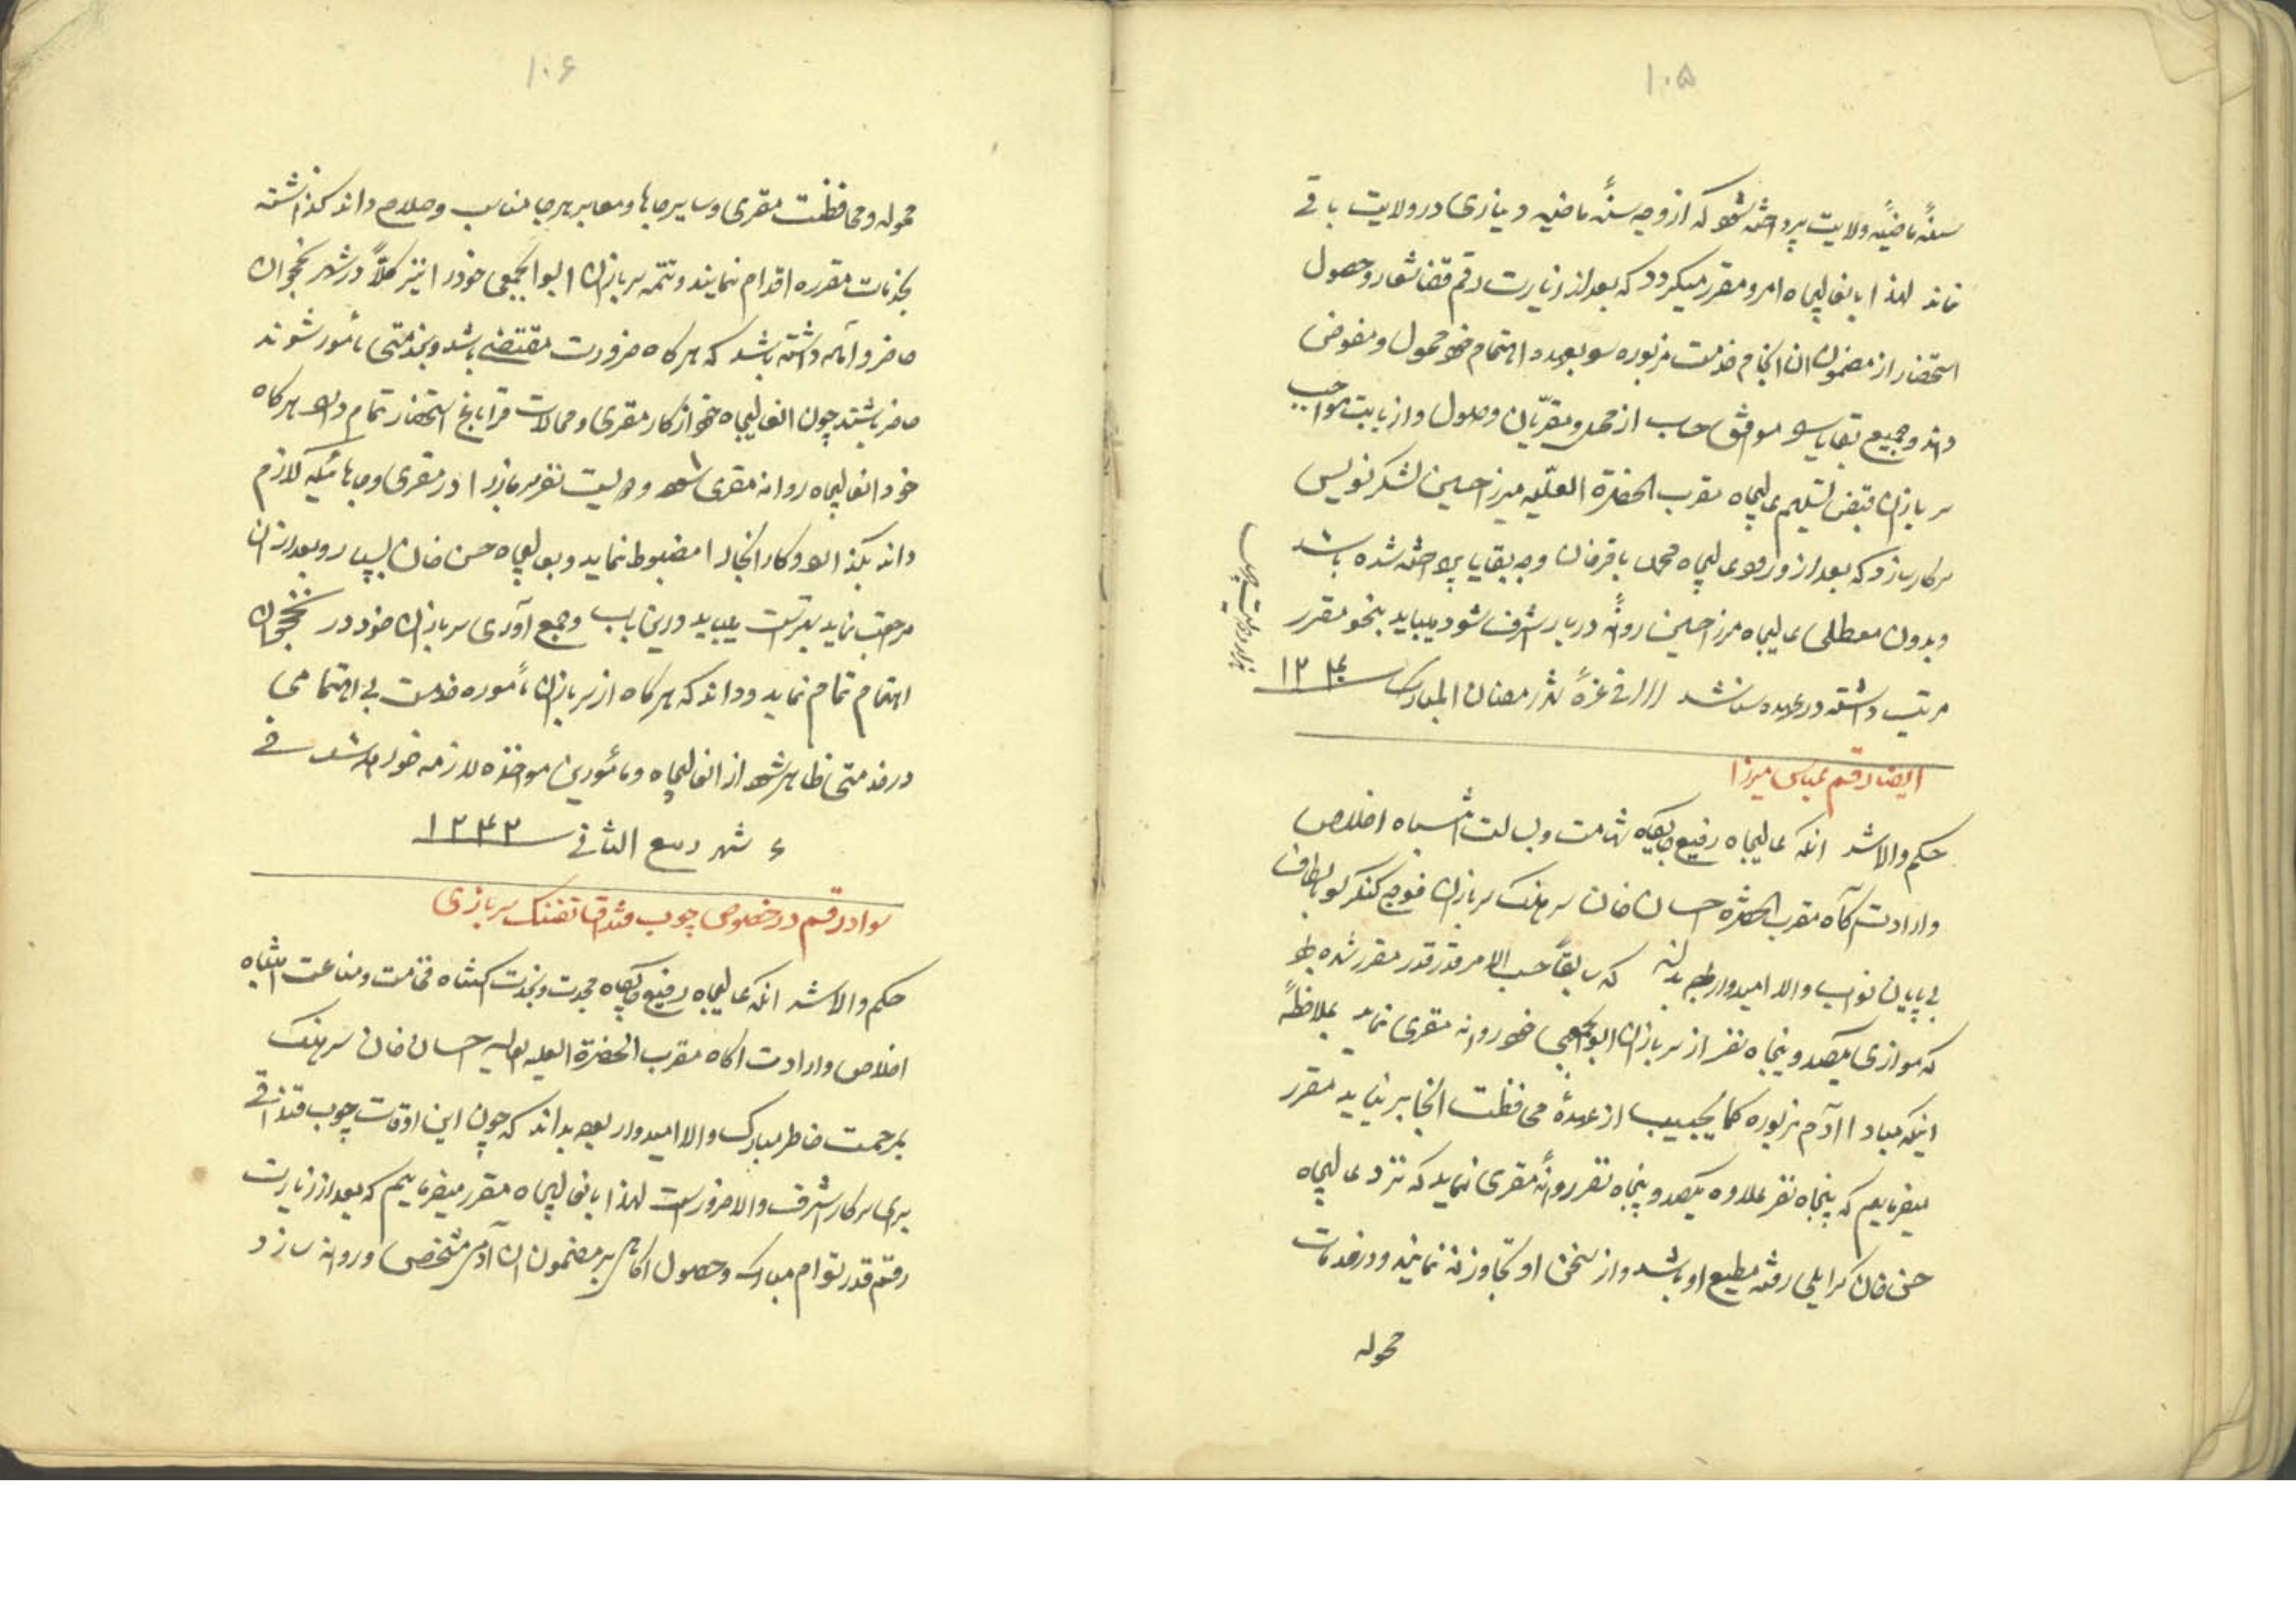 ۱۰۵
سنهٔ ماضیهٔ ولایت پرداخته شود که از وجه سنهٔ ماضیه دیناری در ولایت باقی
نماند لهذا بانعالیجاه امر و مقرر میگردد که بعد از زیارت رقم قضا شعار و حصول
استحضار از مضمون ان انجام خدمت مزبوره سو بعهده اهتمام خود محمول و مفوض
داند و جمیع بقایا سو موافق حساب از محل و مقریان وصول و از بابت مواجب
سربازان قبض تسلیم عالیجاه مقرب الحضرة العلیه میرزا حسین لشکرنویس
سرکار سازد که بعد از ورود عالیجاه محمد باقرخان وجه بقایا پرداخته شده باشد
و بدون معطلی عالیجاه میرزا حسین روانهٔ دربار شرف شود میباید بنحو مقرر
مرتب داشته در عهده شناسند فی غرهٔ شهر رمضان المبارک
ایضا رقم عباس میرزا
حکم والا شد انکه عالیجاه رفیع جایگاه شهامت و بسالت انتباه اخلاص
و ارادت آگاه مقرب الحضرة احسان خان سرهنک سربازان فوج کنکرلو بالطاف
بی پایان نواب والا امیدوار بوده بداند که سابقاً حسب الامر قدر قدر مقرر شده بود
که موازی یکصد و پنجاه نفر از سربازان ابوابجمعی خود روانه مقری نماید بملاحظهٔ
اینکه مبادا آدم مزبوره کما یجب از عهدهٔ محافظت انجا برنیاید مقرر
میفرمایم که پنجاه نفر علاوه یکصد و پنجاه نفر روانهٔ مقری نماید که نزد عالیجاه
حسن خان کرایلی رفته مطیع او باشند و از سخن او تجاوز نه نمایند و در خدمات
محوله
۱۰۶
محوله و محافظت مقری و سایر جاها و معابر هر جا مناسب و صلاح داند کذاشته
بخدمات مقرره اقدام نمایند و تتمه سربازان ابوابجمعی خود را نیز کلاً در شهر نخجوان
حاضر و آماده داشته باشد که هرکاه ضرورت مقتضی باشد و بخدمتی مأمور شوند
حاضر باشند چون انعالیجاه خود از کار مقری و محالات قراباغ استحضار تمام دارد هرکاه
خود انعالیجاه روانه مقری شود و دویست نفر سرباز را در مقری و جاهائیکه لازم
داند بکذارد و کار انجا را مضبوط نماید و بعالیجاه حسن خان بسپارد و بعد از ان
مراجعت نماید بهتر است میباید در این باب و جمع آوری سربازان خود در نخجوان
اهتمام تمام نماید و داند که هرکاه از سربازان مأموره خدمت بی اهتمامی
در خدمتی ظاهر شود از انعالیجاه و مأمورین مواخذه لازمه خواهد شد فی
شهر ربیع الثانی ۱۲۴۲
سواد رقم در خصوص چوب قنداق تفنک سربازی
حکم والا شد انکه عالیجاه رفیع جایگاه مجدت و نجدت اکتناه فخامت و مناعت انتباه
اخلاص و ارادت اکاه مقرب الحضرة العلیه العالیه احسان خان سرهنک
بمرحمت خاطر مبارک والا امیدوار بوده بداند که چون این اوقات چوب قنداقی
برای سرکار اشرف والا ضرور است لهذا بانعالیجاه مقرر میفرمایم که بعد از زیارت
رقم قدر توام مبارک و حصول اکاهی بر مضمون ان آدمی مشخص و روانه سازد